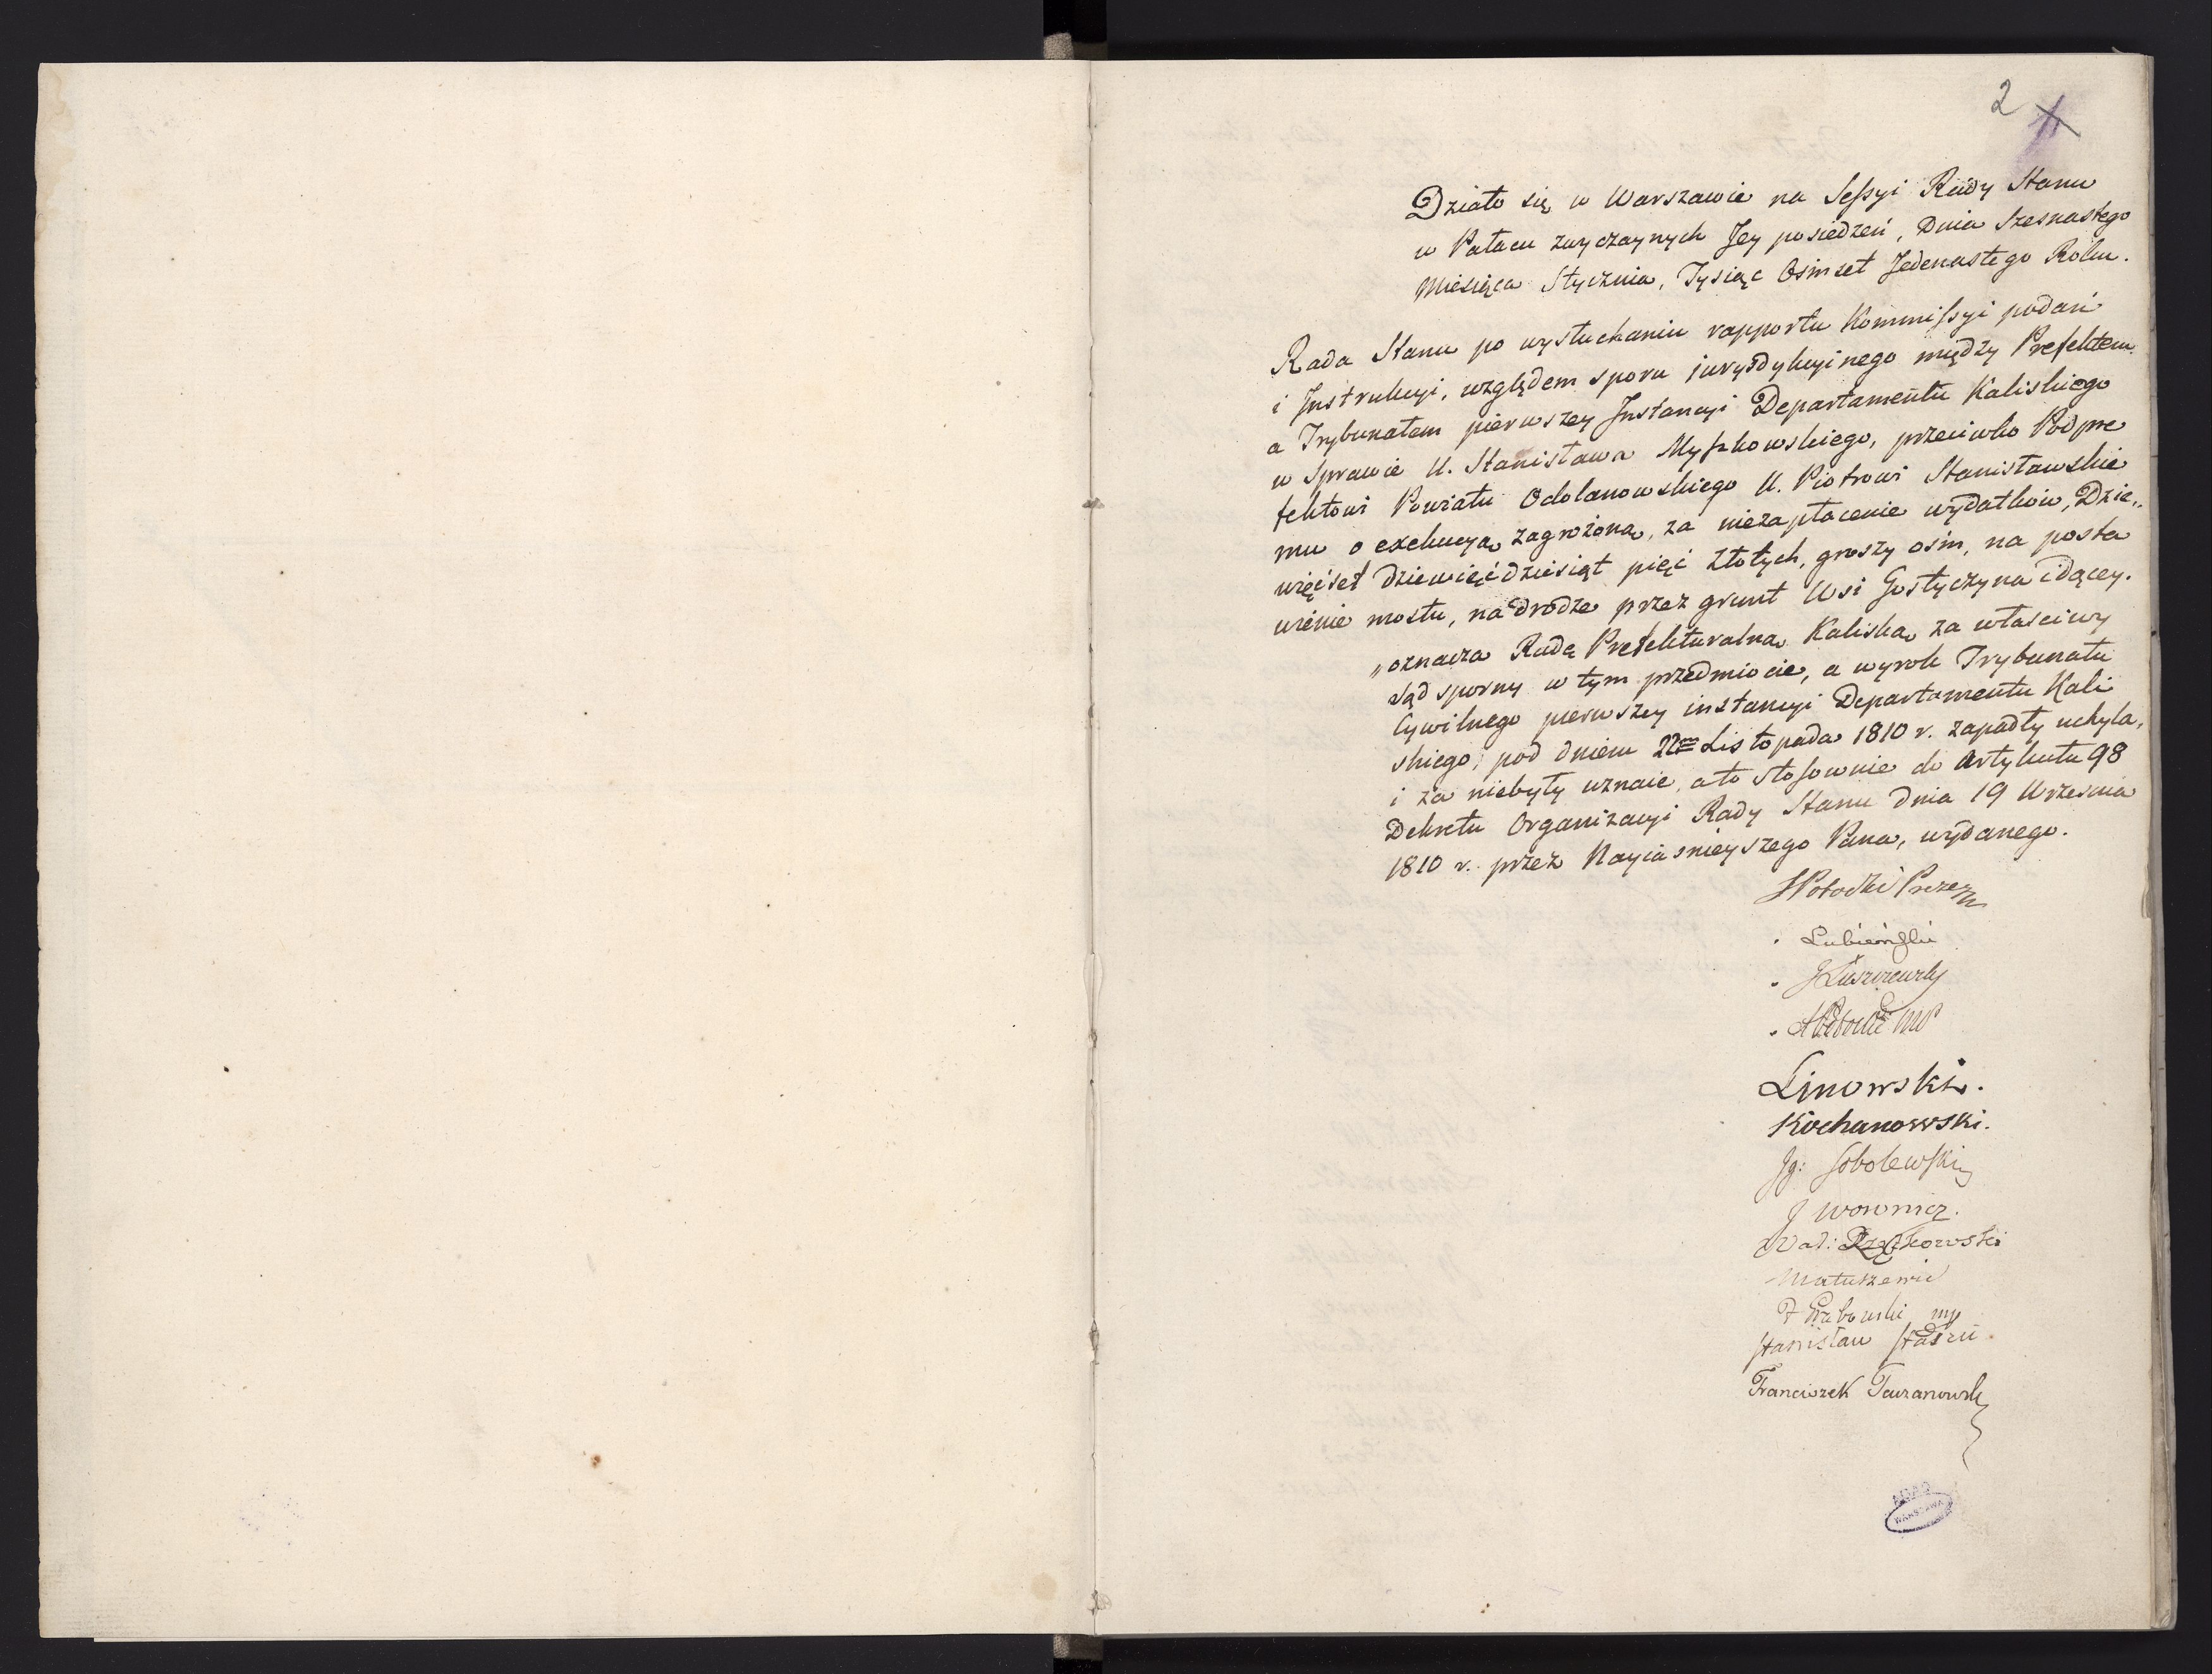 2
Działo się w Warszawie na Sessyi Rady Stanu
w Pałacu zwyczaynych Jey posiedzeń, Dnia Szesnastego
Miesiąca Stycznia, Tysiąc Ośmset Jedenastego Roku.
Rada Stanu po wysłuchaniu rapportu Kommissyi podań
i Instrukcyi, względem sporu jurysdykcyinego między Prefektem
a Trybunałem pierwszey Instancyi Departamentu Kaliskiego
w Sprawie U. Stanisława Myszkowskiego, przeciwko Podpre
fektowi Powiatu Odolanowskiego U. Piotrowi Stanisławskie
mu o exekucyą zagrożoną, za niezapłacenie wydatków, Dzie„
więćset dziewięćdziesiąt pięć Złotych, groszy ośm, na posta
wienie mostu, na drodze przez grunt Wsi Gostyczyna idącey.
„oznacza Radę Prefekturalną Kaliską za właściwy
Sąd sporny w tym przedmiocie, a wyrok Trybunału
Cywilnego pierwszey instancyi Departamentu Kali
skiego, pod dniem 22m Listopada 1810 r. zapadły uchyla,
i za niebyły uznaie, a to stosownie do Artykułu 98
Dekretu Organizacyi Rady Stanu dnia 19 Września
1810 r. przez Nayiaśnieyszego Pana, wydanego.
SPotocki Prezes
Lubieński
JLuszczewsky
APotocki MP
Linowski.
Kochanowski.
Ig: Sobolewski
J Woronicz.
Wal: Rzątkowski
Matuszewic
F Grabowski mp
Stanisław Staszic
Franciszek Tarzanowski
AGAD
WARSZAWA